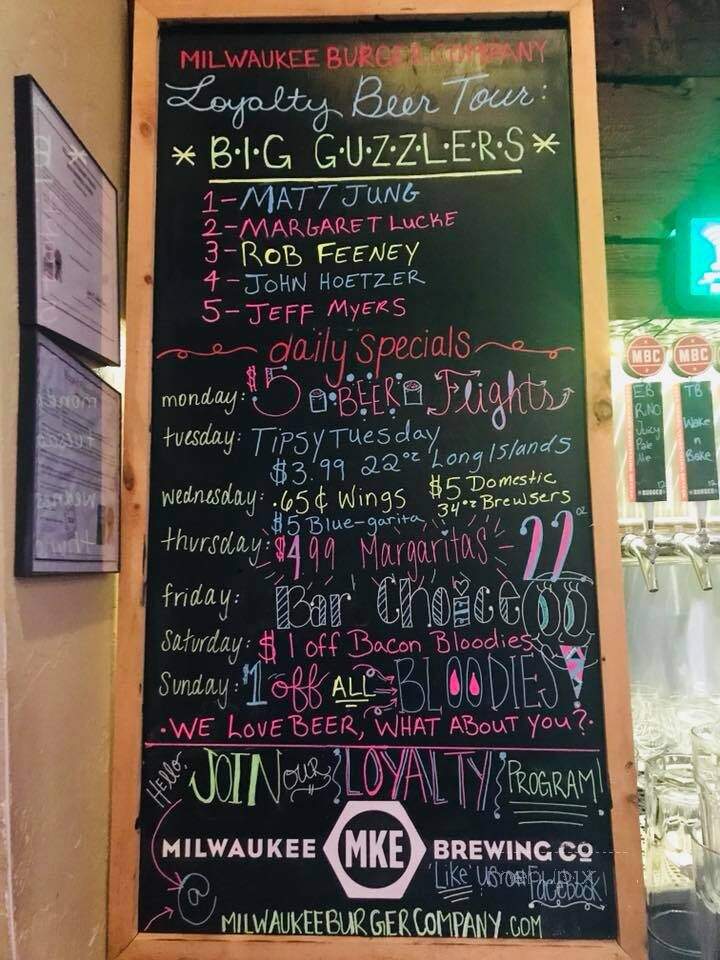 MILWAUKEE BURGER COMPANY
Loyalty Beer Tour:
* B·I·G G·U·Z·Z·L·E·R·S *
1-MATT JUNG
2-MARGARET LUCKE
3-ROB FEENEY
4-JOHN HOETZER
5-JEFF MYERS
daily specials
monday: $5 BEER Flights
tuesday: TIPSY TUESDAY
$3.99 22oz Long Islands
wednesday: .65¢ Wings $5 Domestic 34oz Brewsers
$5 Blue-garita
thursday: $4.99 Margaritas - 22oz
friday: Bar Choice
Saturday: $1 off Bacon Bloodies
Sunday: $1 off ALL BLOODIES
·WE LOVE BEER, WHAT ABOUT YOU?·
Hello: JOIN our LOYALTY PROGRAM!
MILWAUKEE MKE BREWING CO
'Like' us on Facebook!
@
MILWAUKEEBURGERCOMPANY.COM
MBC
EB
RNO
Juicy
Pale
Ale
MBC
TB
Wake
n
Bake